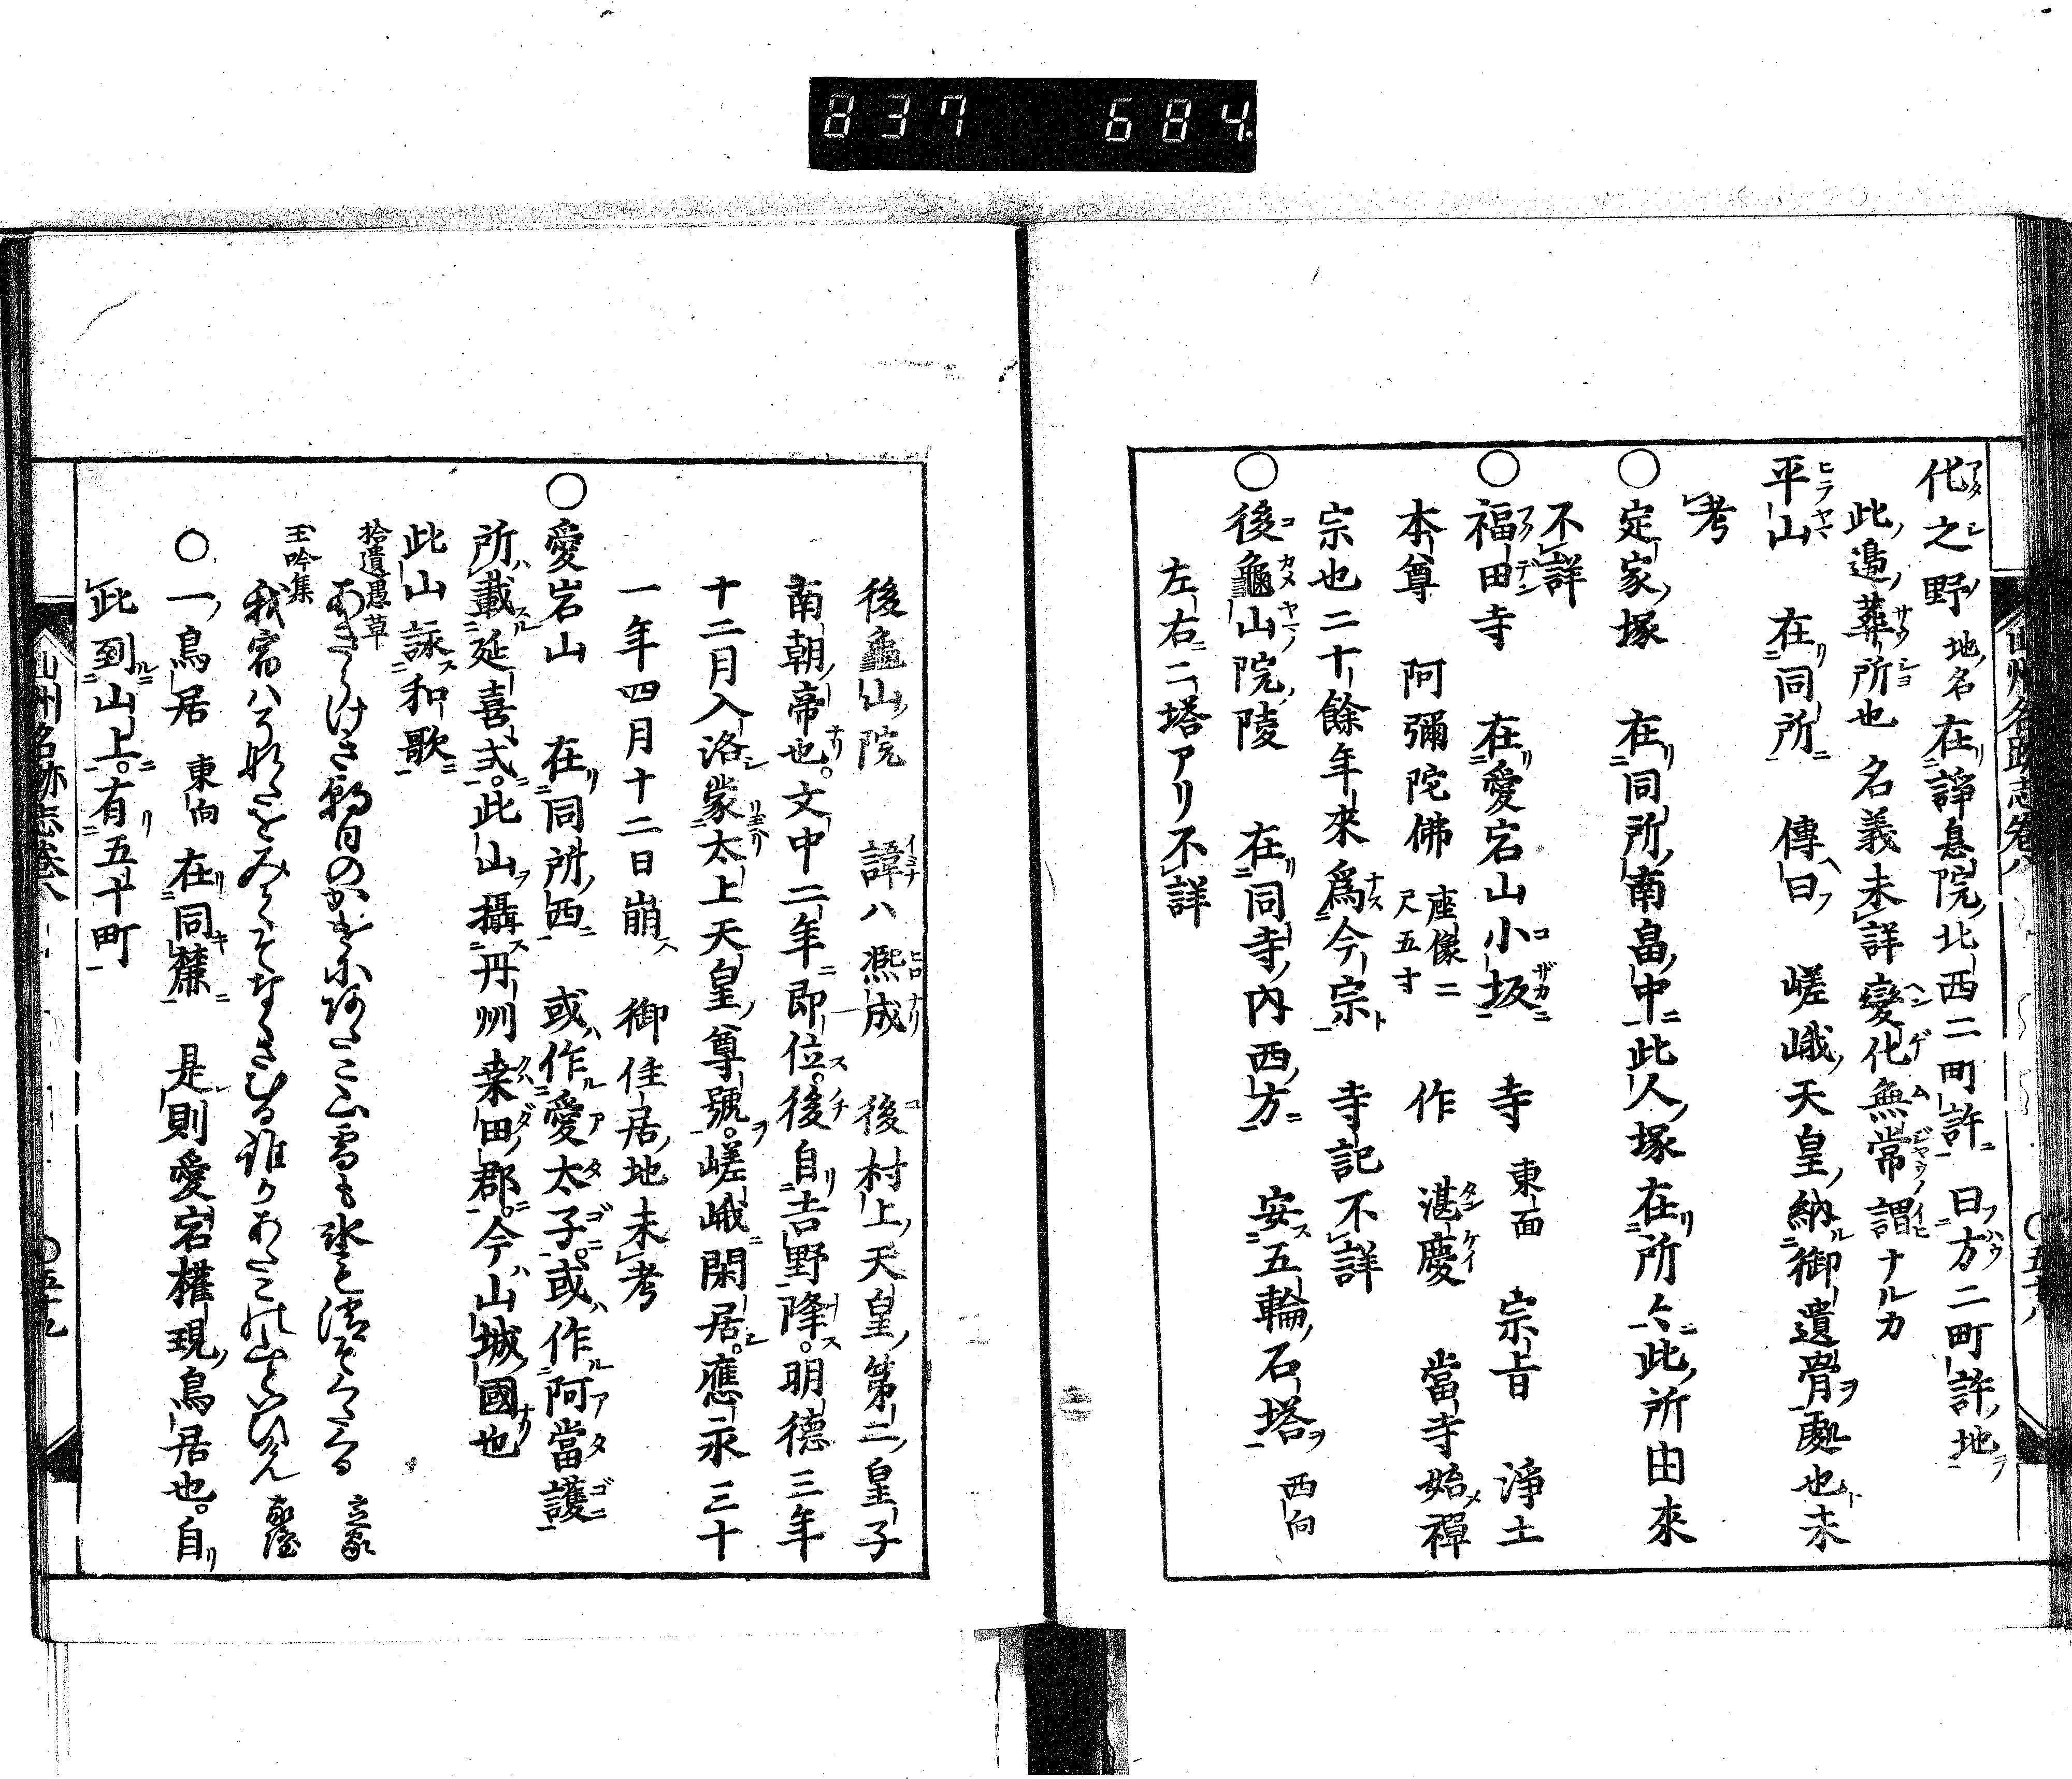 837 684
山州名跡志巻八
化之野 地名 在諍息院北西二町許曰方二町許地
此邉葬所也 名義未詳變化無常謂ナルカ
平山 在同所 傳曰 嵯峨天皇納御遺骨處也未
考
○定家塚 在同所南畠中此人塚在所〻此所由來
不詳
○福田寺 在愛宕山小坂 寺 東面 宗旨 淨土
本尊 阿彌陀佛 座像二尺五寸 作 湛慶 當寺始禪
宗也二十餘年來爲今宗 寺記不詳
○後龜山院陵 在同寺内西方 安五輪石塔 西向
左右二塔アリ不詳
後龜山院 諱ハ熈成 後村上天皇第二皇子
南朝帝也。文中二年即位。後自吉野降。明德三年
十二月入洛蒙太上天皇尊號。嵯峨閑居。應永三十
一年四月十二日崩 御住居地未考
○愛宕山 在同所西 或作愛太子。或作阿當護
所載延喜式。此山攝丹州桒田郡。今山城國也
此山詠和歌
拾遺愚草
玉吟集
○一鳥居 東向 在同麓 是則愛宕權現鳥居也。自
此到山上。有五十町
山州名跡志巻八